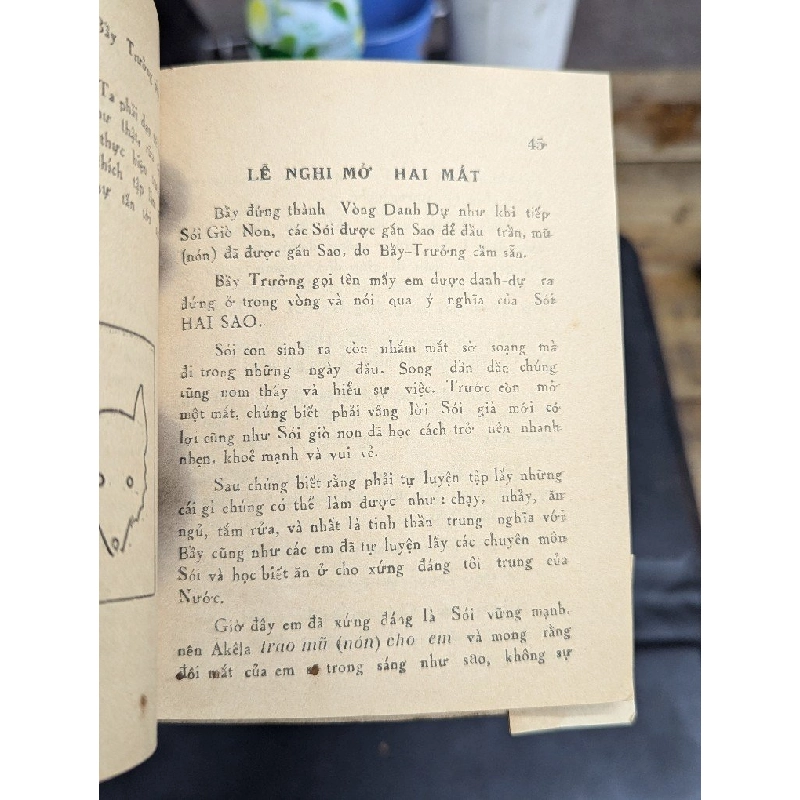 Bầy Trưởng
Ta phải
thực hiện
45
LỄ NGHI MỞ HAI MẮT
Bầy đứng thành Vòng Danh Dự như khi tiếp
Sói Giò Non, các Sói được gắn Sao để đầu trần, mũ
(nón) đã được gắn Sao, do Bầy-Trưởng cầm sẵn.
Bầy Trưởng gọi tên mấy em được danh-dự ra
đứng ở trong vòng và nói qua ý nghĩa của Sói
HAI SAO.
Sói con sinh ra còn nhắm mắt sờ soạng mà
đi trong những ngày đầu. Song dần dần chúng
cũng nom thấy và hiểu sự việc. Trước còn mở
một mắt, chúng biết phải vâng lời Sói già mới có
lợi cũng như Sói giò non đã học cách trở nên nhanh
nhẹn, khoẻ mạnh và vui vẻ.
Sau chúng biết rằng phải tự luyện tập lấy những
cái gì chúng có thể làm được như : chạy, nhảy, ăn
ngủ, tắm rửa, và nhất là tinh thần trung nghĩa với
Bầy cũng như các em đã tự luyện lấy các chuyên môn
Sói và học biết ăn ở cho xứng đáng tôi trung của
Nước.
Giờ đây em đã xứng đáng là Sói vững mạnh,
nên Akêla trao mũ (nón) cho em và mong rằng
đôi mắt của em sẽ trong sáng như sao, không sự